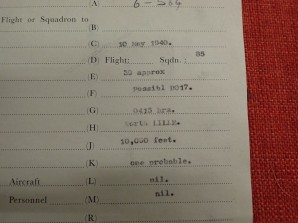 (A) 6 -
Flight or Squadron to
(B)
(C) 10 May 1940.
(D) Flight: Sqdn. 85
(E) 20 approx
(F) Possibl
(G) 0415 hrs.
(H) North LILLE.
(J) 10,000 feet.
(K) one probable.
Aircraft (L) nil.
Personnel (M) nil.
(R)